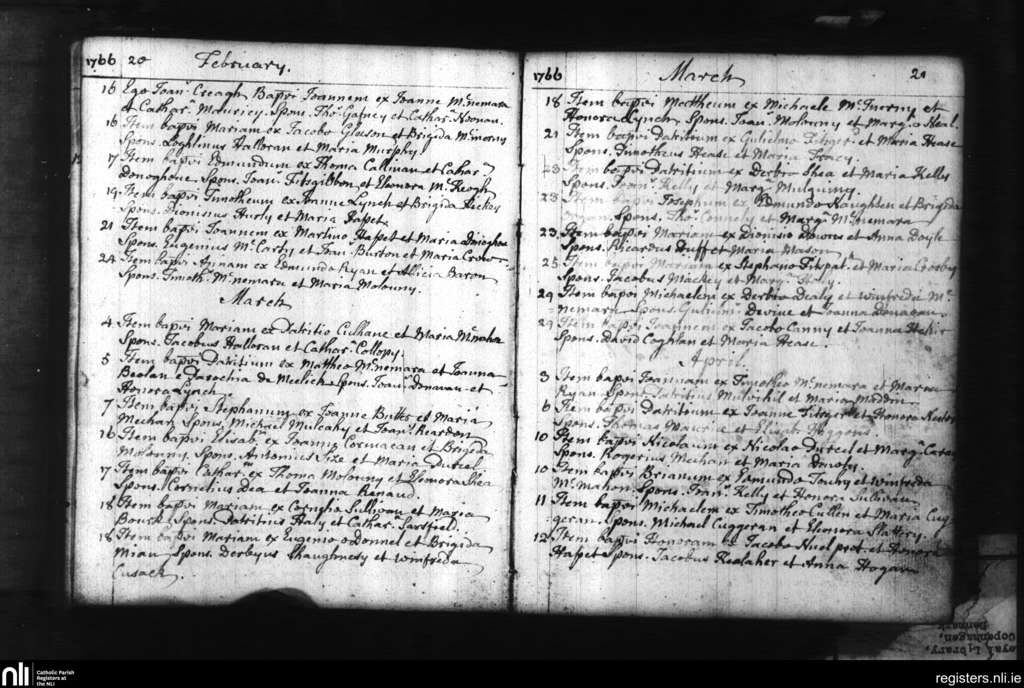 1766 20 February.
16 Ego Joan. Creagh Bapvi Joannem ex Joanne Mcnemara
et Cathar. Mauricy. Spons. Tho. Gafney et Cathar. Noonan.
16 Item bapvi Mariam ex Jacobo Gleeson et Brigida
Spons. Loghlinus Halloran et Maria Murphy.
17 Item bapvi Edmundum ex Thoma Callinan et Cathar.
Donoghoue. Spons. Joan. Fitzgibbon et Eleonora McKeogh
19 Item bapvi Timotheum ex Joanne Lynch et Brigida Hickey
Spons. Dionisius Hurly et Maria Haspet
21 Item bapvi Joannem ex Martino Haspet et Maria
Spons. Eugenius McCarty et Fran. Burton et Maria
24 Item bapvi Annam ex Edmundo Ryan et Allicia Baron
Spons. Timoth. Mcnemara et Maria Molouny.
March
4 Item bapvi Mariam ex Patritio Culhane et Maria
Spons. Jacobus Halloran et Cathar. Collopy.
5 Item bapvi Patritium ex Mattheo Mcnemara et Joanna
Beolan e Parochia de Meelick Spons. Joan. Donavan et
Honora Lynch
7 Item bapvi Stephanum ex Joanne Butler et Maria
Mechan Spons. Michael Mulcahy et Joan. Reardon
16 Item bapvi Elisab. ex Joanne Cormacan et Brigida
Molouny. Spons. Antonius Sixe et Maria Durcel
17 Item bapvi Cathar. ex Thoma Molouny et Honora Shea
Spons. Cornelius Dea et Joanna
18 Item bapvi Mariam ex Cornelio Sullivan et Maria
Bourk Spons. Patritius Haly et Cathar. Sarsfield.
18 Item bapvi Mariam ex Eugenio oDonnel et Brigida
Spons. Derbyus Shaughnesy et Winifreda
Cusack
1766 March 21
18 Item bapvi Mattheum ex Michaele et
Honora Lynch Spons. Joan. Molouny et Marg.a Neal.
21 Item bapvi Patritium ex Gulielmo Fitzger. et Maria Hease
Spons. Timotheus Hease et Maria
23 Item bapvi Patritium ex Derbio Shea et Maria Kelly
Spons. Joan. Kelly et Marg. Mulquiny.
23 Item bapvi Josephum ex Edmundo Naughten et Brigida
Spons. Tho. Connely et Marg. Mcnemara
23 Item bapvi Mariam ex Dionisio et Anna Doyle
Spons. Ricardus Duff et Maria Mason
25 Item bapvi ex Stephano Fitzpat. et Maria Crosbey
Spons. Jacobus Mackey et Marg. Haly.
29 Item bapvi Michaelem ex Derbio Dealy et Winifreda Mc
nemara Spons. Gulielm. Devine et Joanna Donavan.
29 Item bapvi Joannem ex Jacobo Canny et Joanna
Spons. David Coghlan et Maria Hease.
April.
3 Item bapvi Joannam ex Timotheo Mcnemara et Maria
Ryan. Spons. Patritius Mulvihil et Maria Maddin
6 Item bapvi Patritium ex Joanne Fitzger. et Honora
Spons. Thomas Maurice et Elisab. Higgens
10 Item bapvi Nicolaum ex Nicolao Durcel et Marg. Carey
Spons. Rogerius Mechan et Maria
10 Item bapvi Brianum ex Edmundo Touhy et Winifreda
McMahon. Spons. Fran. Kelly et Honora Sullivan
11 Item bapvi Michaelem ex Timotheo Cullen et Maria Cug
geran. Spons. Michael Cuggeran et Eleonora Slattery.
12 Item bapvi Honoram ex Jacobo et Honora
Haspet Spons. Jacobus Kealaher et Anna Hogan
Royal Library,
Copenhagen,
Denmark
nli Catholic Parish
Registers at
the NLI
registers.nli.ie